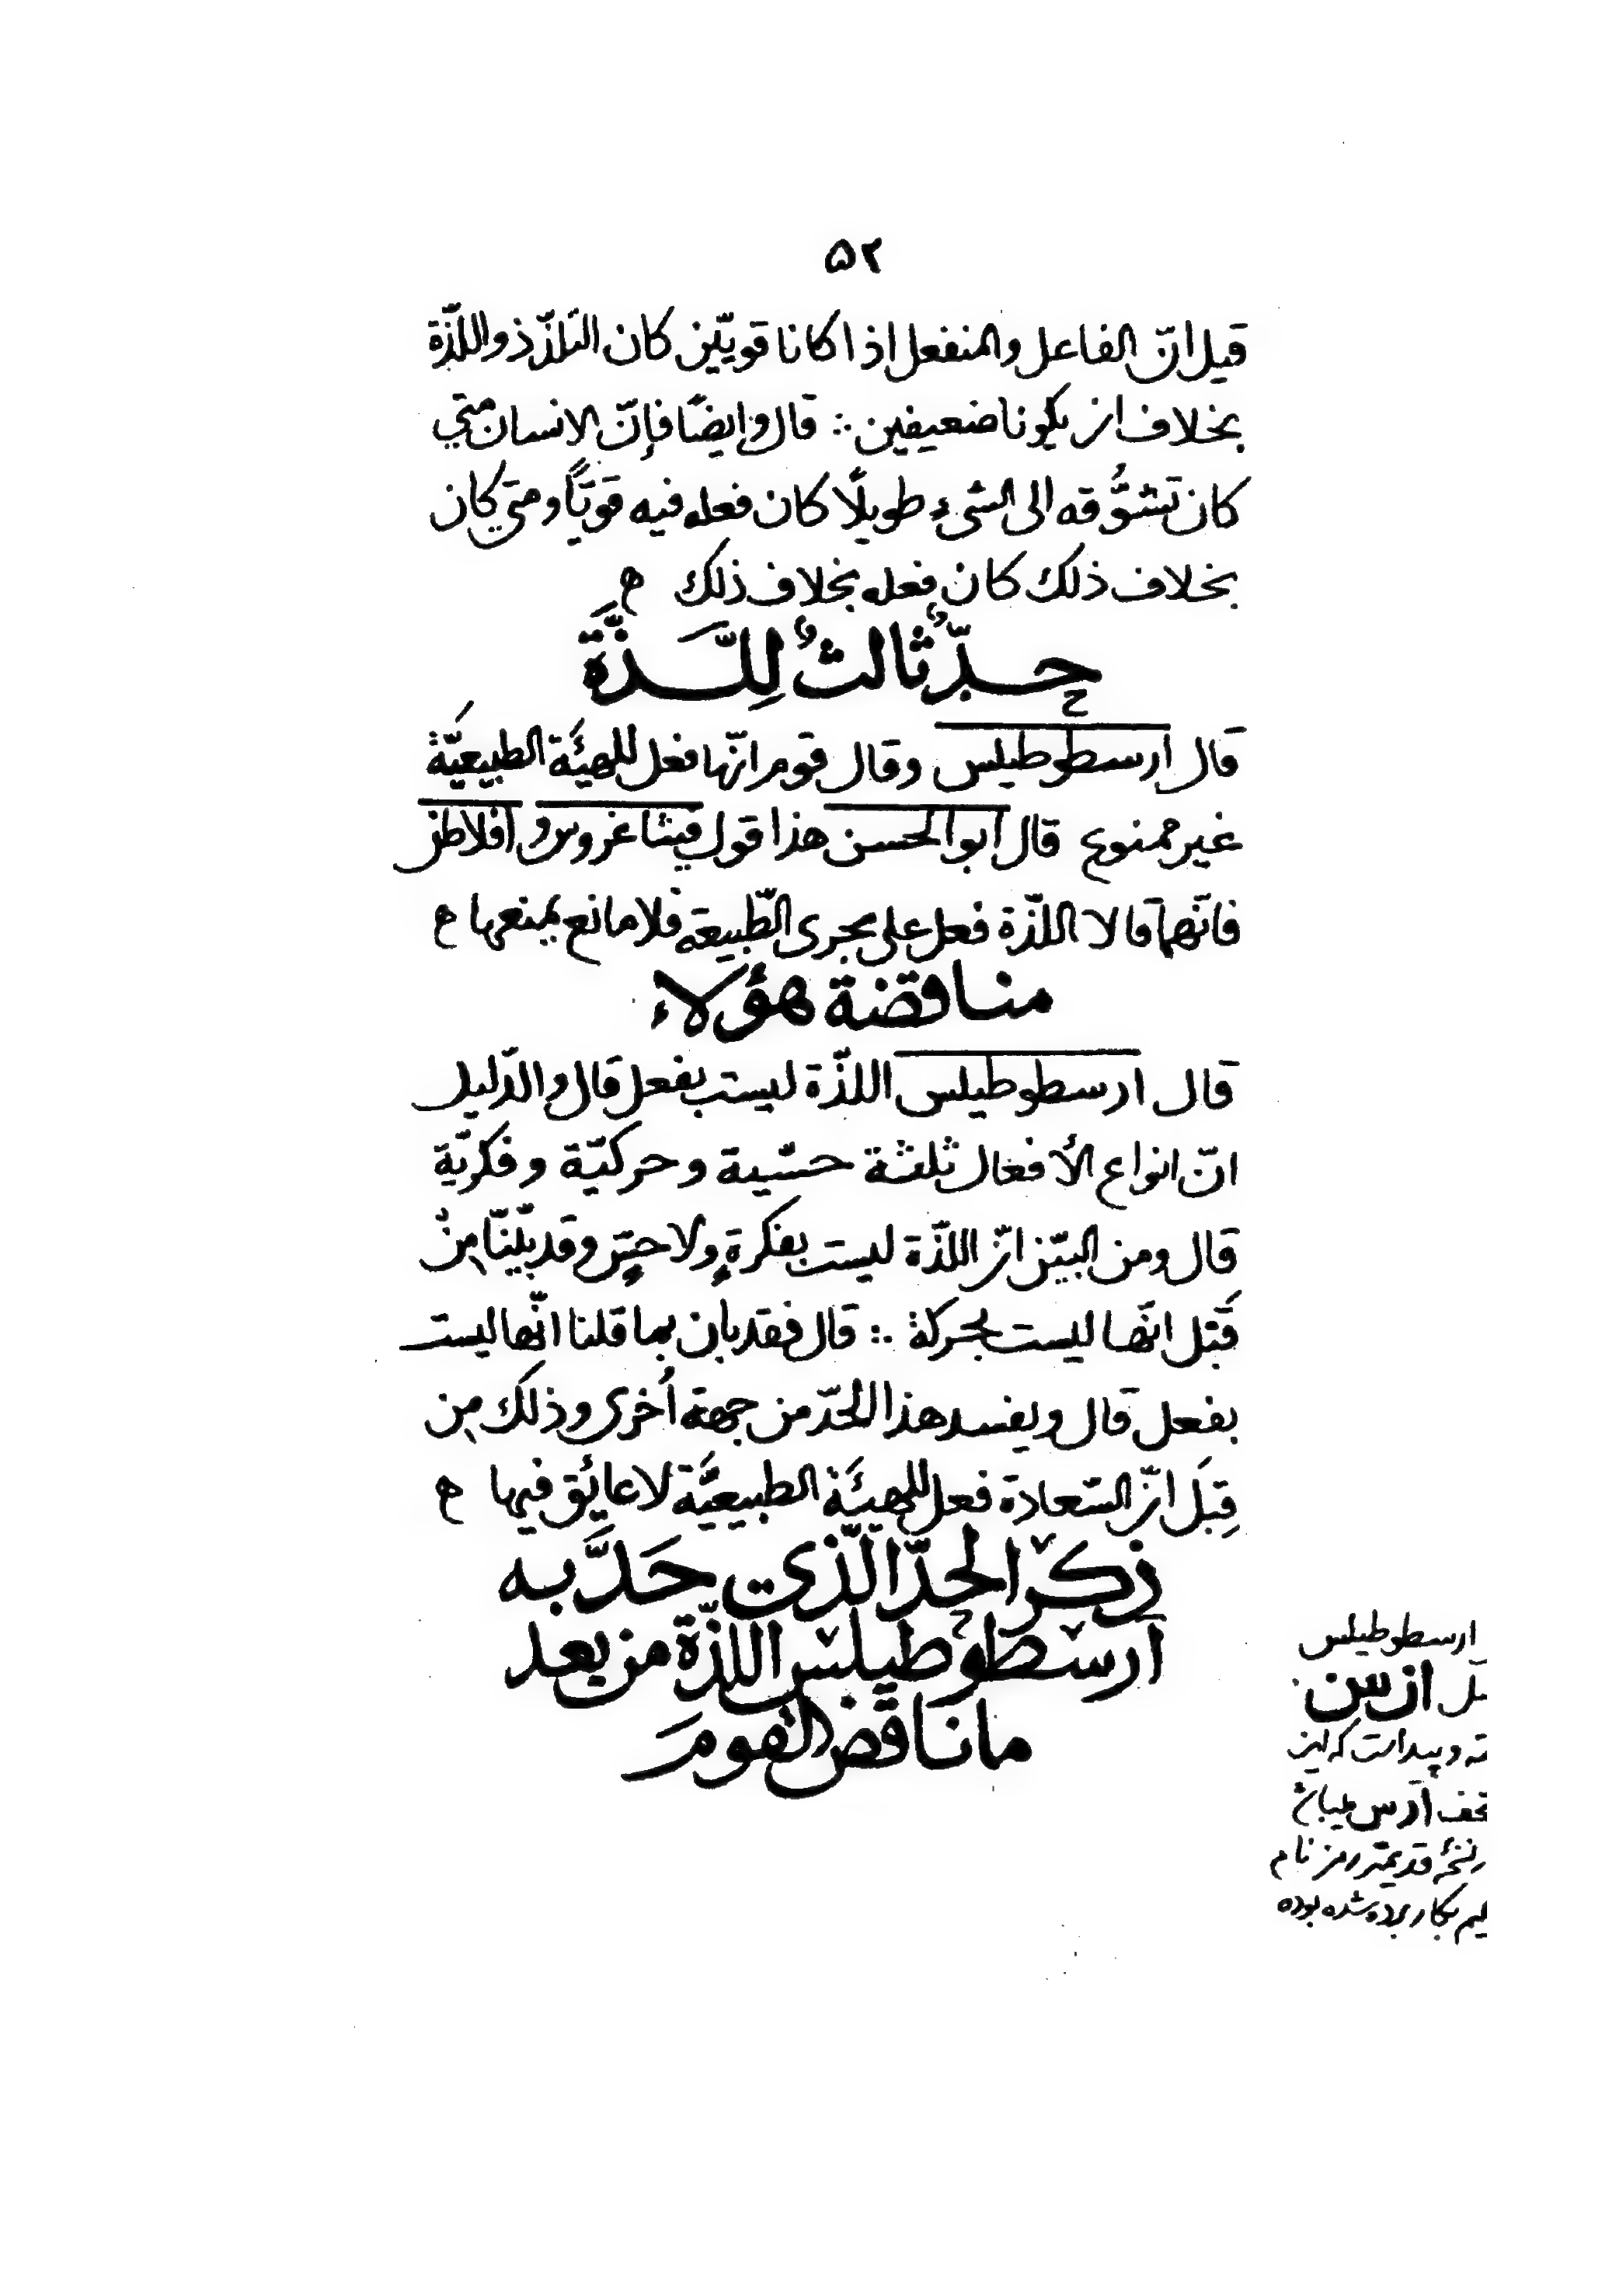 ۵۲
قيل انّ الفاعل والمنفعل اذا كانا قويّين كان التلذّذ واللذّة
بخلاف ان يكونا ضعيفين ∴ قال وايضًا فإنّ الانسان متي
كان تشوُّقه الى الشىء طويلًا كان فعله فيه قويّاً ومتي كان
بخلاف ذلك كان فعله بخلاف ذلك ه
حدّ ثالث لِلَّذَّة
قال ارسطوطيلس وقال قوم انّها فعل للهيئَة الطبيعيّة
غير ممنوع قال ابو الحسن هذا قول فيثاغروس وافلاطن
فانّهما قالا اللذّة فعل على مجرى الطّبيعة فلا مانع يمنعها ه
مناقضة هؤلاء
قال ارسطوطيلس اللذّة ليست بفعل قال والدّليل
انّ انواع الأفعال ثلثة حسّية وحركيّة وفكريّة
قال ومن البيّن انّ اللذّة ليست بفكرةٍ ولا حسٍّ وقد بيّنّا مِنْ
قَبْل انّها ليست بحركة ∴ قال فقد بان بما قلنا انّها ليست
بفعل قال ويفسد هذا الحدّ من جهة اُخرى وذلك مِن
قِبَل انّ السّعادة فعل للهيئَة الطبيعيَّة لا عايُق فيها ه
ذكر الحدّ الّذى حَدَّ به
ارسطوطيلس اللذّة من بعد
ما ناقض القومَ
ارسطوطيلس
ارسن
و پيداست كه اين
ارس
قديمتر رمز نام
بكار برده شده بوده